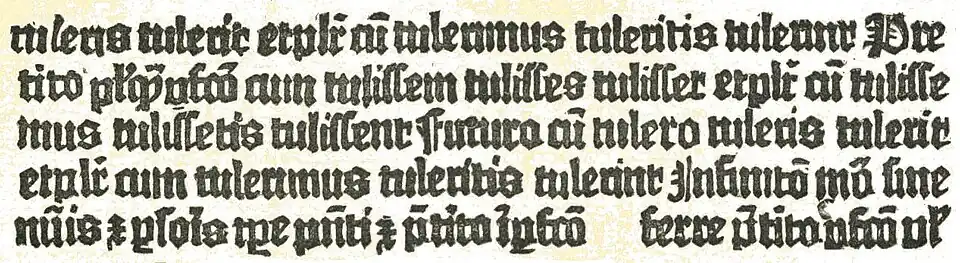 tuleris tulerit etplr̄ cū tulerimus tuleritis tulerint Pre
tito plusq̄ꝑfcō cum tulissem tulisses tulisset etplr̄ cū tulisse
mus tulissetis tulissent Futuro cū tulero tuleris tulerit
etplr̄ cum tulerimus tuleritis tulerint Infinitō mō sine
nūis ⁊ ꝑsōis tꝑe pn̄ti ⁊ p̄tito īꝑfcō ferre p̄tito ꝑfcō